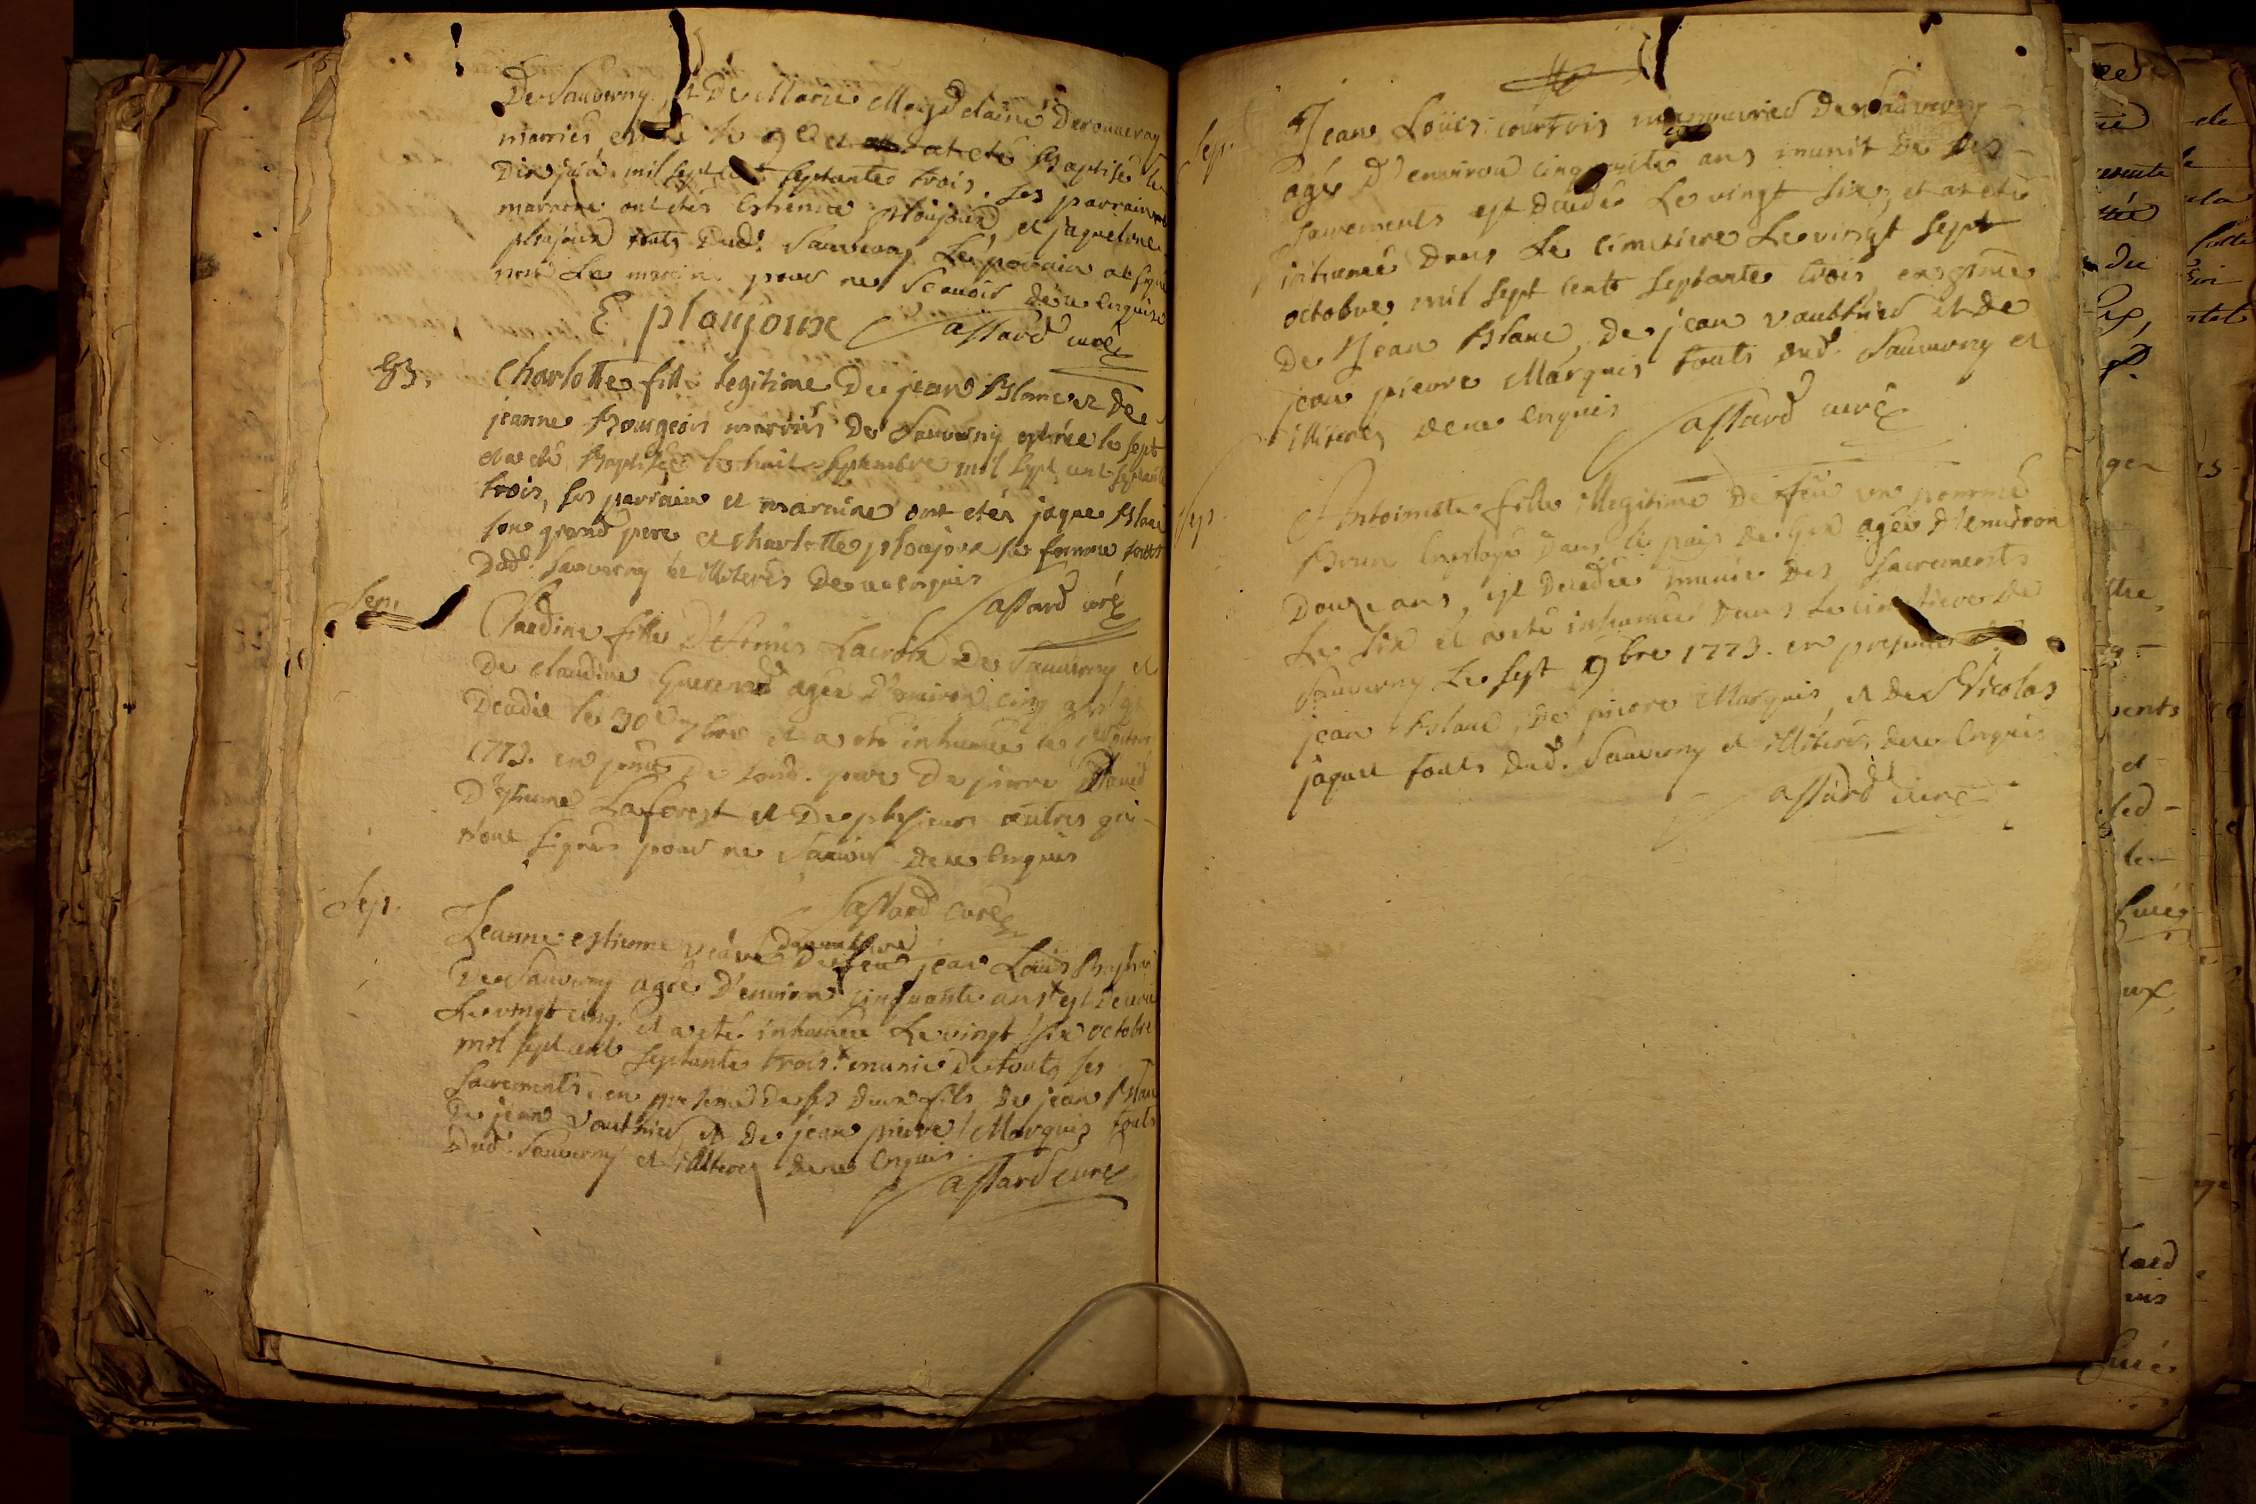 De Sauverny, et De Marie Magdelaine Deronneray
marriés, est né le 9e et at eté Baptisé le
Dix juin mil sept cent septante trois. ses parrain et
marraine ont étés Estienne ploujoux, et jaqueline
ploujoux touts Dud. Sauverny Le parrain at signé
non La marraine pour ne Scavoir de ce Enquise
E ploujoux assard curé
B3.
Charlotte fille legitime De jean Blanc et De
jeanne Bourgeois marriés De Sauverny est née le sept
et a eté Baptisée le huit Septembre mil sept cent septante
trois, ses parrain et marraine ont etés jaque Blanc
son grand pere et charlotte ploujoux sa femme touts
Dud. Sauverny et illiterés De ce enquis
assard curé
Sep.
Claudine fille D'Estienne Lacroix De Sauverny et
De claudine agée D'environ cinq ans est
Decedée le 30e 7bre et a eté inhumée le 1er
1773. en De pierre David
D'Estienne Laforest et De plusieurs autres qui
n'ont signés pour ne Savoir De ce Enquis
assard curé
Sep.
Jeanne estienne veuve De feu jean Loüis
De Sauverny agée D'environ cinquante ans est
Le vingt cinq. et a eté inhumée Le vingt six octobre
mil sept cent septante trois. munie De touts ses
Sacrements, en presence De ses Deux fils De jean Blanc
De jean vauthier, et De jean pierre Marquis touts
Dud. Sauverny et illiterés de ce Enquis.
assard curé
Sep.
Jean Loüis courtois manouvrier De Sauverny
agé D'environ cinquante ans munit De ses
Sacrements est Decedé Le vingt six, et at eté
inhumé Dans Le cimetiere Le vingt sept
octobre mil sept cents septante trois, en presence
De Jean Blanc, De jean vauthier et De
jean pierre Marquis touts dud. Sauverny et
illiterés de ce Enquis
assard curé
Sep.
Antoinette fille illegitime De feu un nommé
Brun Employé Dans le païs De Gex agée D'environ
Douze ans, est Decedée munie Des Sacrements
Le six et a eté inhumée Dans Le cimetiere De
Sauverny Le sept 9bre 1773. en presence de
jean Blanc, De pierre Marquis, et De Nicolas
jaquet touts Dud. Sauverny et illiterés de ce Enquis
assard curé